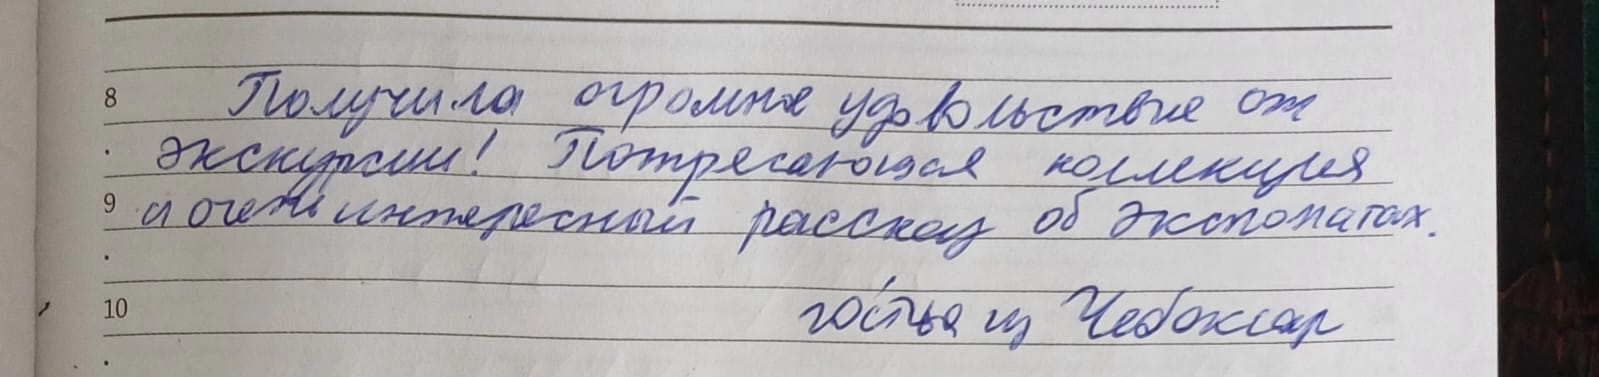 8 Получила огромное удовольствие от
экскурсии! Потрясающая коллекция
9 и очень интересный рассказ об экспонатах.
10 гостья из Чебоксар